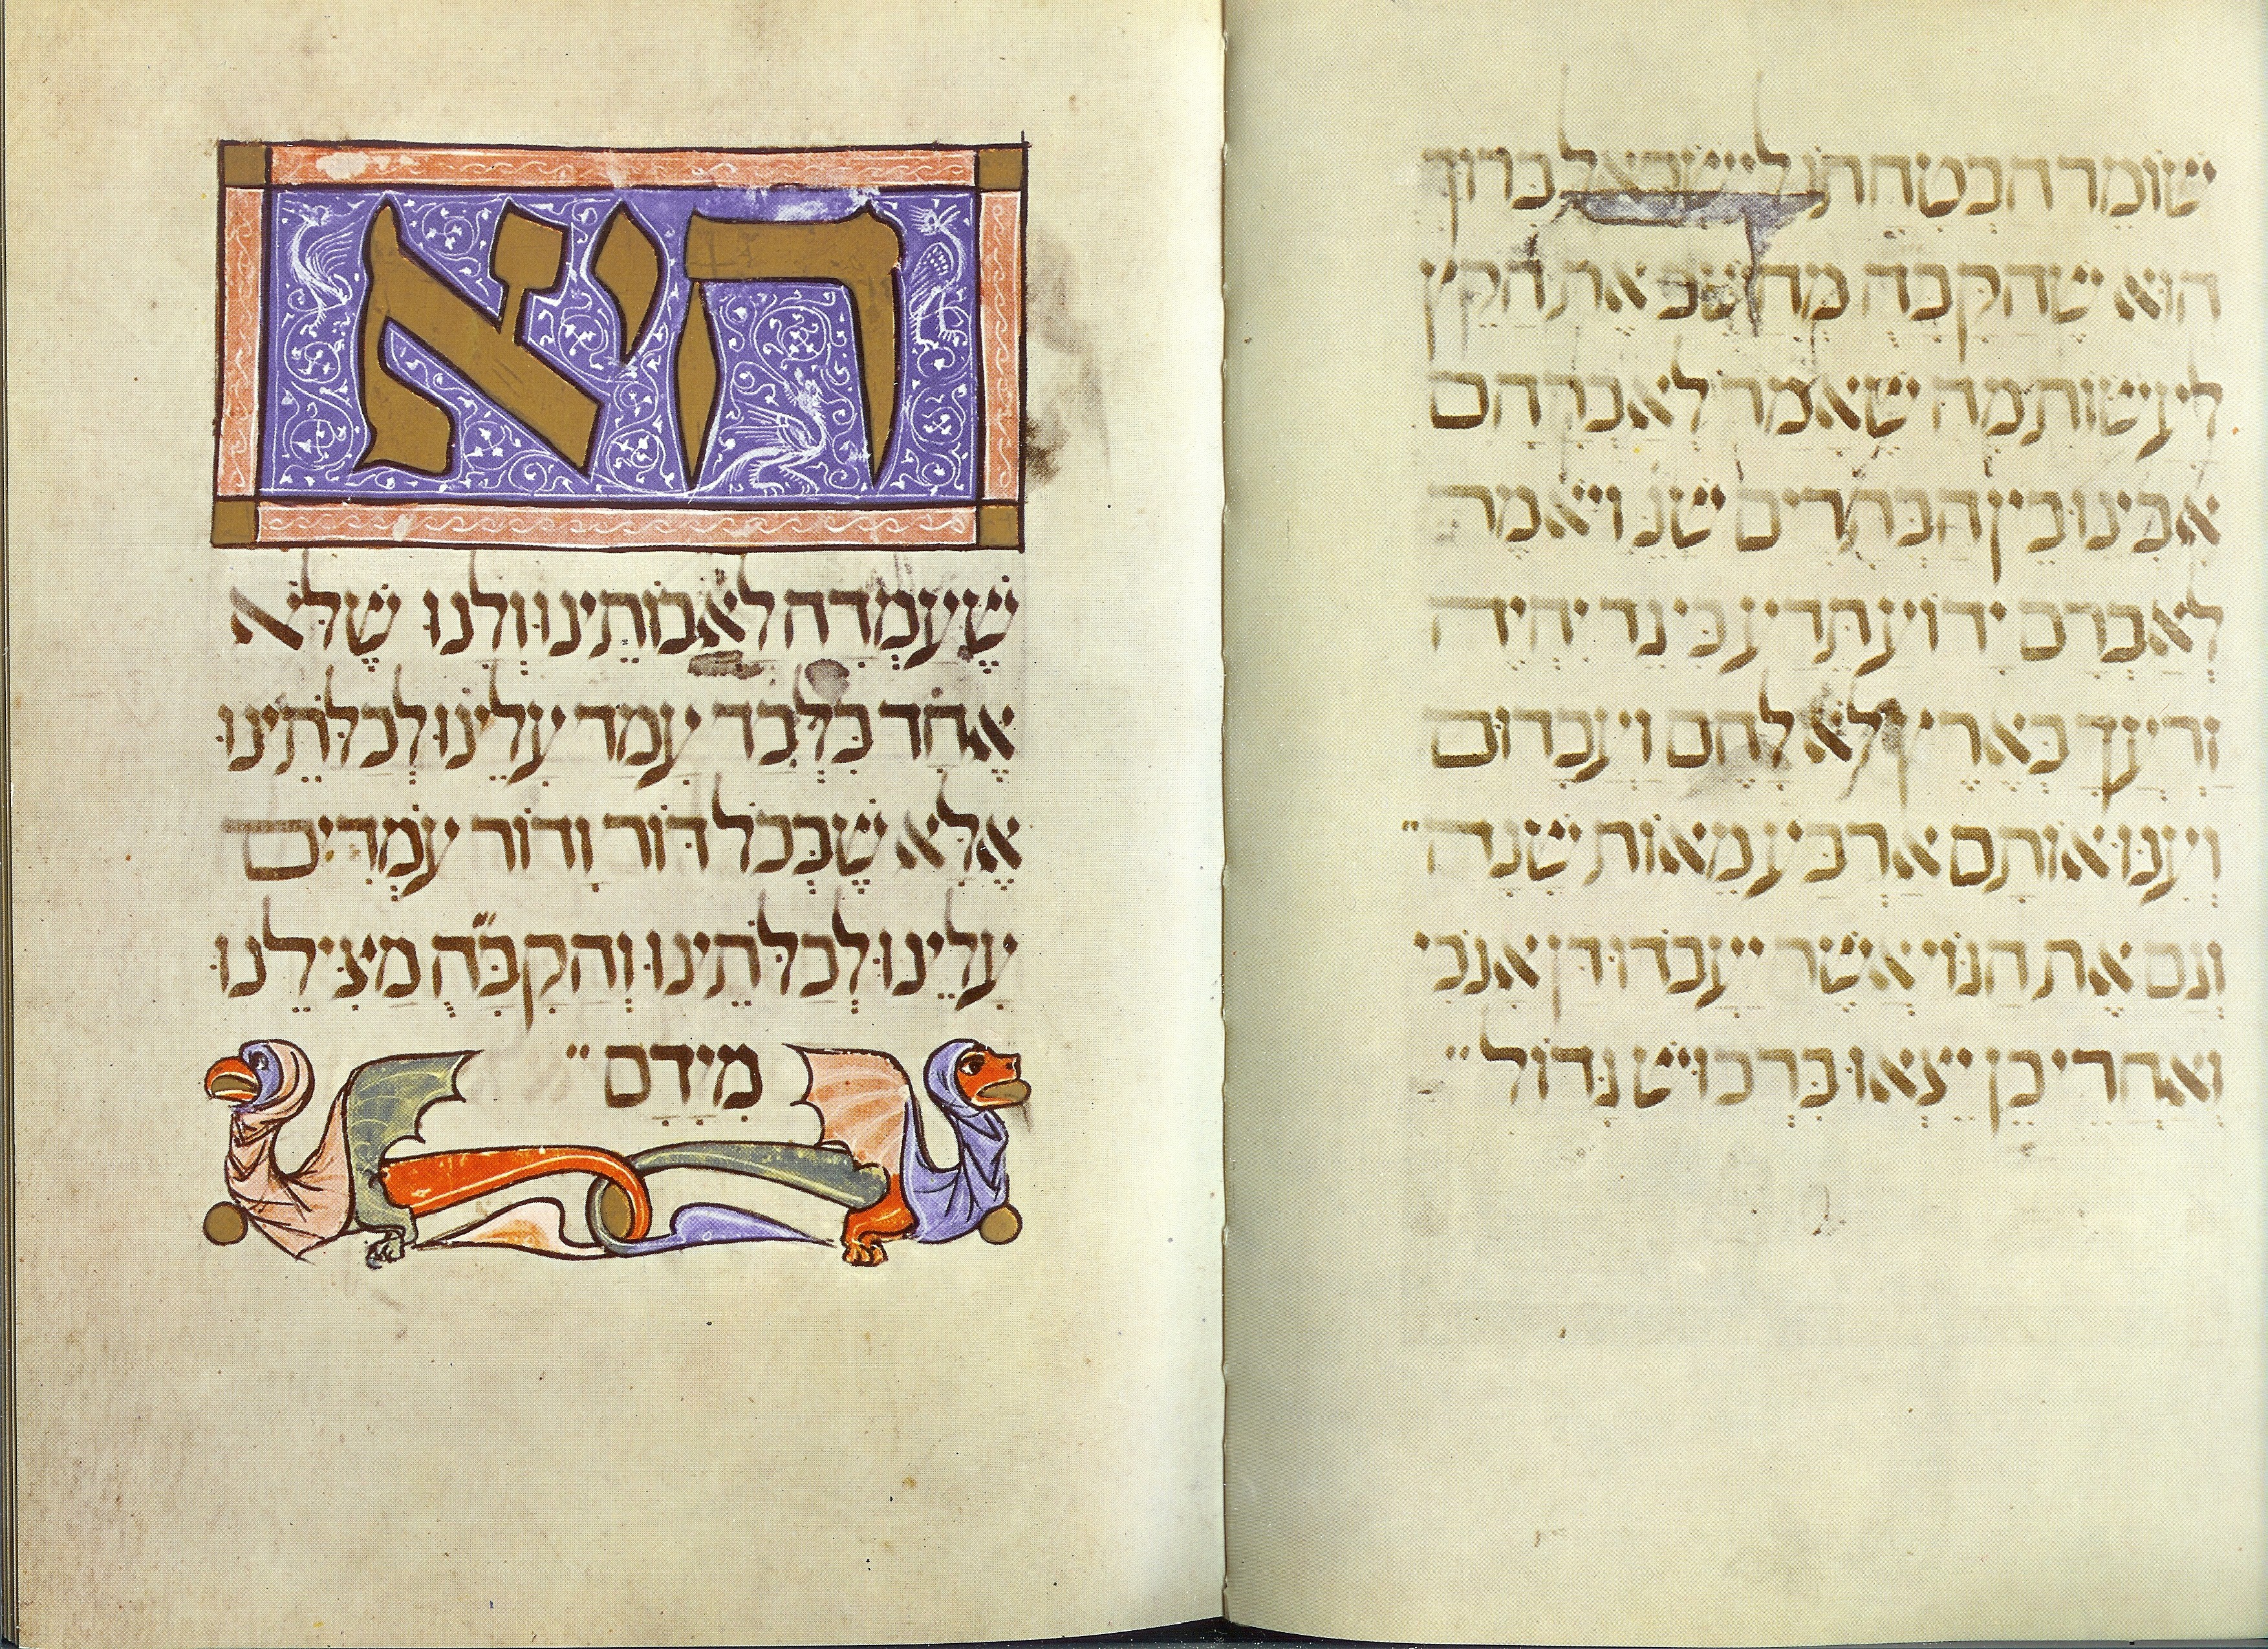 שומר הבטחתו לישראל ברוך
הוא שהקבה מחשב את הקץ
לעשות מה שאמר לאברהם
אבינו בין הבתרים שנ ויאמר
לאברם ידוע תדע כי גר יהיה
זרעך בארץ לא להם ועבדום
וענו אותם ארבע מאות שנה״
וגם את הגוי אשר יעבדו דן אנכי
ואחרי כן יצאו ברכוש גדול״
היא
שעמדה לאבתינו ולנו שלא
אחד בלבד עמד עלינו לכלתינו
אלא שבכל דור ודור עמדים
עלינו לכלתינו והקב״ה מצילנו
מידם״